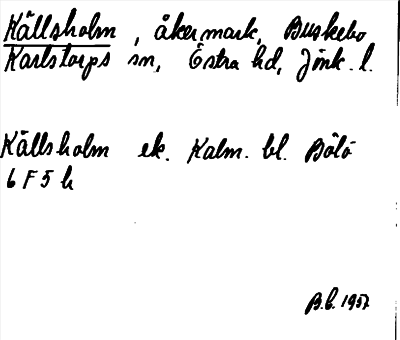 Källsholm, åkermark, Buskebo
Karlstorps sn, Östra hd, Jönk. l.
Källsholm ek. Kalm. bl. Bölö
6 F 5 h
B.b. 1957